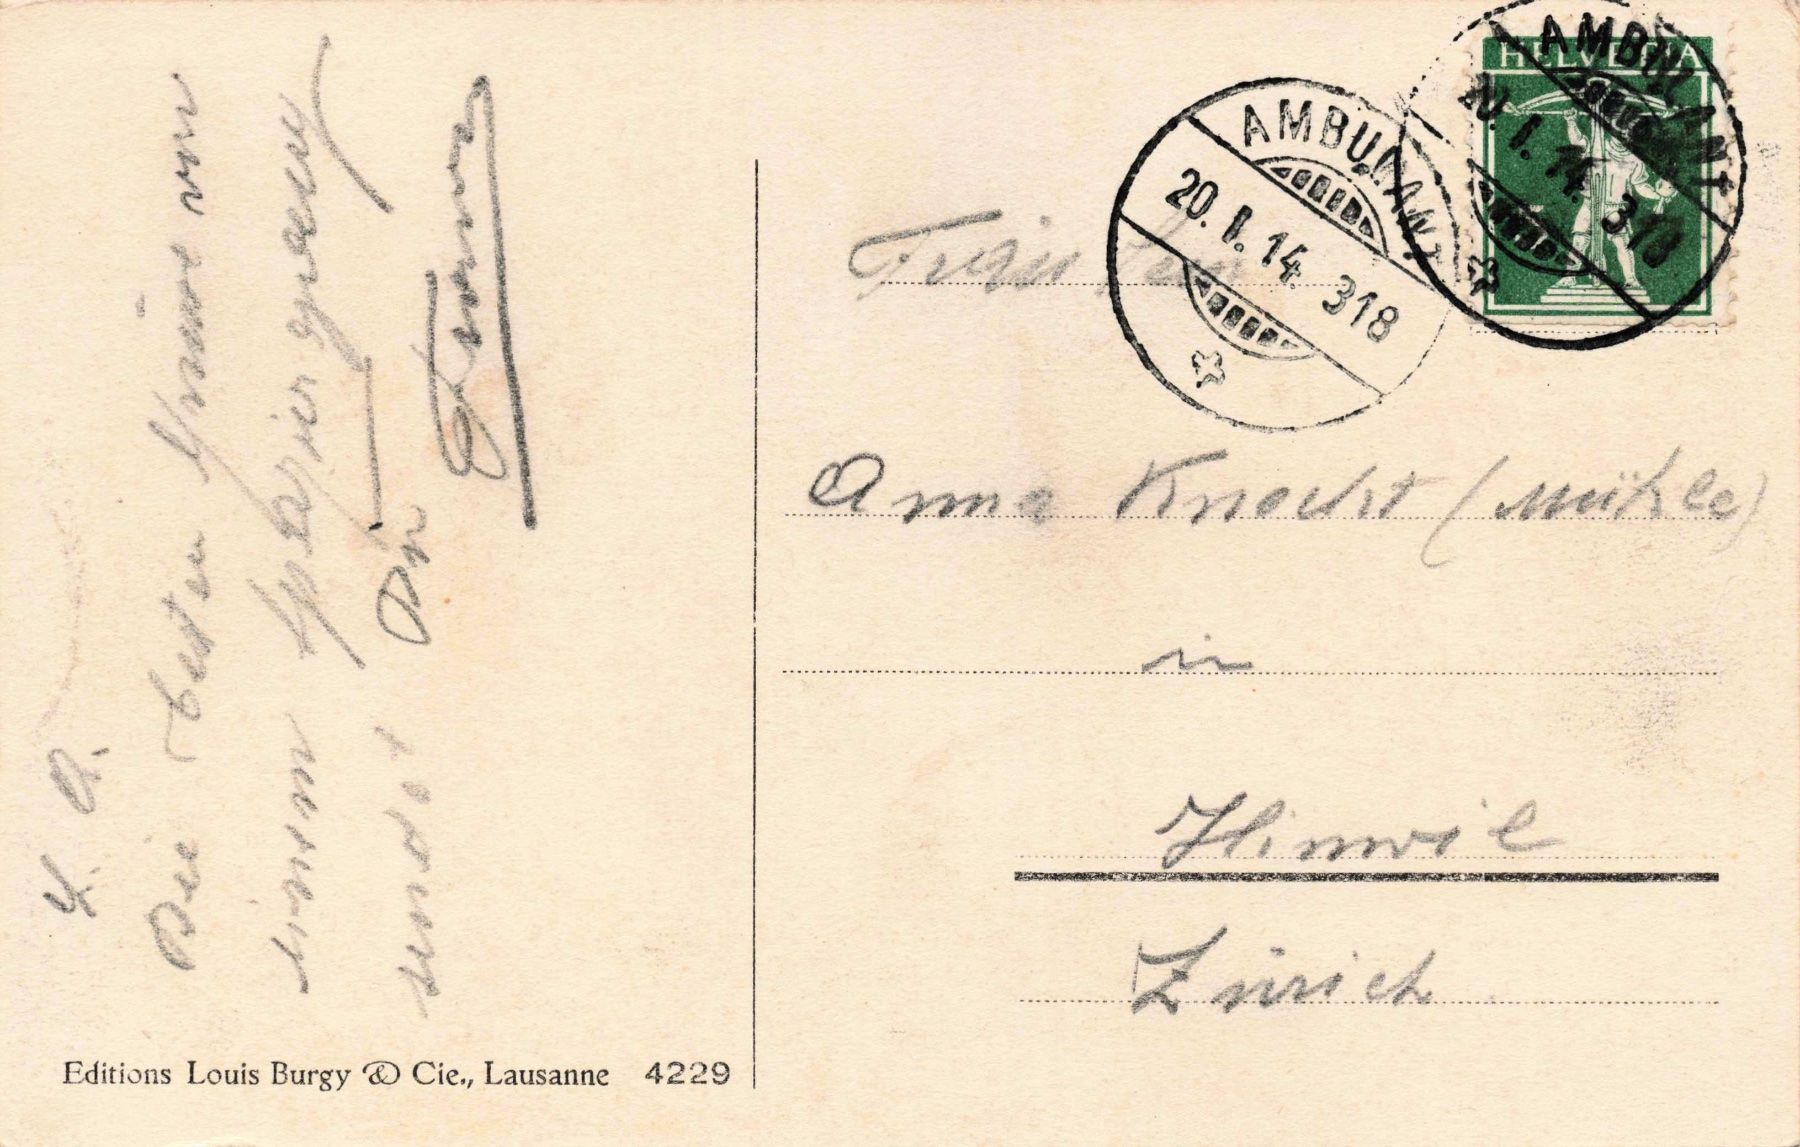 L. A.
Die besten Grüsse von
einem Spaziergang
sendet Dir
Editions Louis Burgy & Cie., Lausanne 4229
HELVETIA
AMBULANT
20. I. 14. 318
AMBULANT
20. I. 14. 318
Anna Knecht (Mühle)
in
Hinwil
Zürich